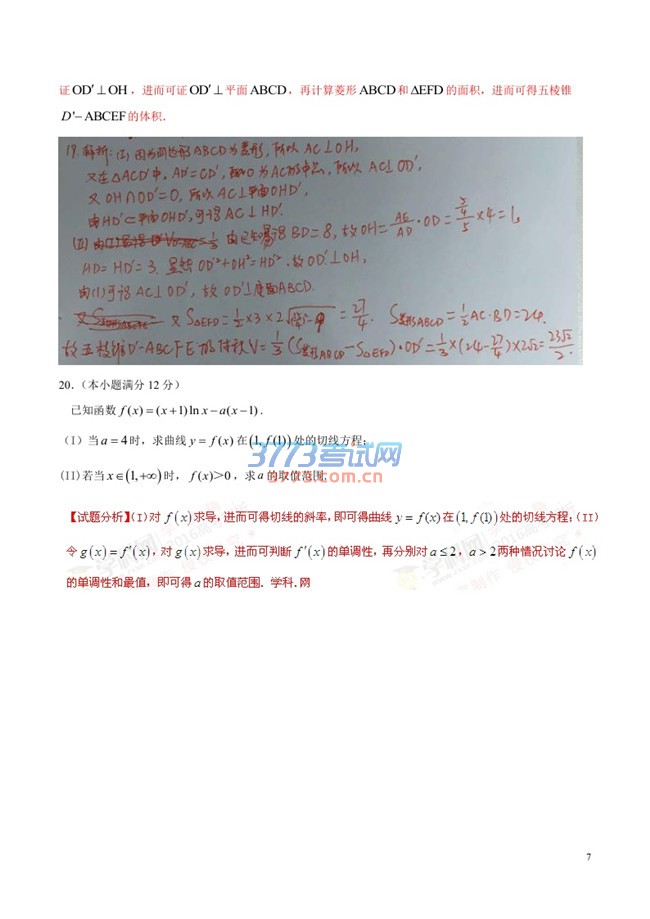 证OD′⊥OH，进而可证OD′⊥平面ABCD，再计算菱形ABCD和ΔEFD的面积，进而可得五棱锥
D'−ABCEF的体积．
19.解析：(I) 因为四边形ABCD为菱形，所以AC⊥OH,
又在△ACD′中，AD′=CD′，且O为AC的中点，所以AC⊥OD′,
又OH∩OD′=O，所以AC⊥平面OHD′,
由HD′⊂平面OHD′，可得AC⊥HD′.
(II) 由已知易得BD=8，故OH=AE/AD·OD=(5/4)/5×4=1,
HD=HD′=3，显然OD′²+OH²=HD′²，故OD′⊥OH,
由(I)可得AC⊥OD′，故OD′⊥底面ABCD.
又S△EFD=1/2×3×2=27/4. S菱形ABCD=1/2AC·BD=24.
故五棱锥D′-ABCFE的体积V=1/3(S菱形ABCD−S△EFD)·OD′=1/3×(24−27/4)×2√2=23√2/2.
20．（本小题满分12分）
已知函数f(x)=(x+1)ln x−a(x−1)．
（I）当a=4时，求曲线y=f(x)在(1,f(1))处的切线方程；
3773考试网
.com.cn
(II)若当x∈(1,+∞)时，f(x)>0，求a的取值范围.
【试题分析】(I)对f(x)求导，进而可得切线的斜率，即可得曲线y=f(x)在(1,f(1))处的切线方程；(II)
令g(x)=f′(x)，对g(x)求导，进而可判断f′(x)的单调性，再分别对a≤2，a>2两种情况讨论f(x)
的单调性和最值，即可得a的取值范围．学科.网
7